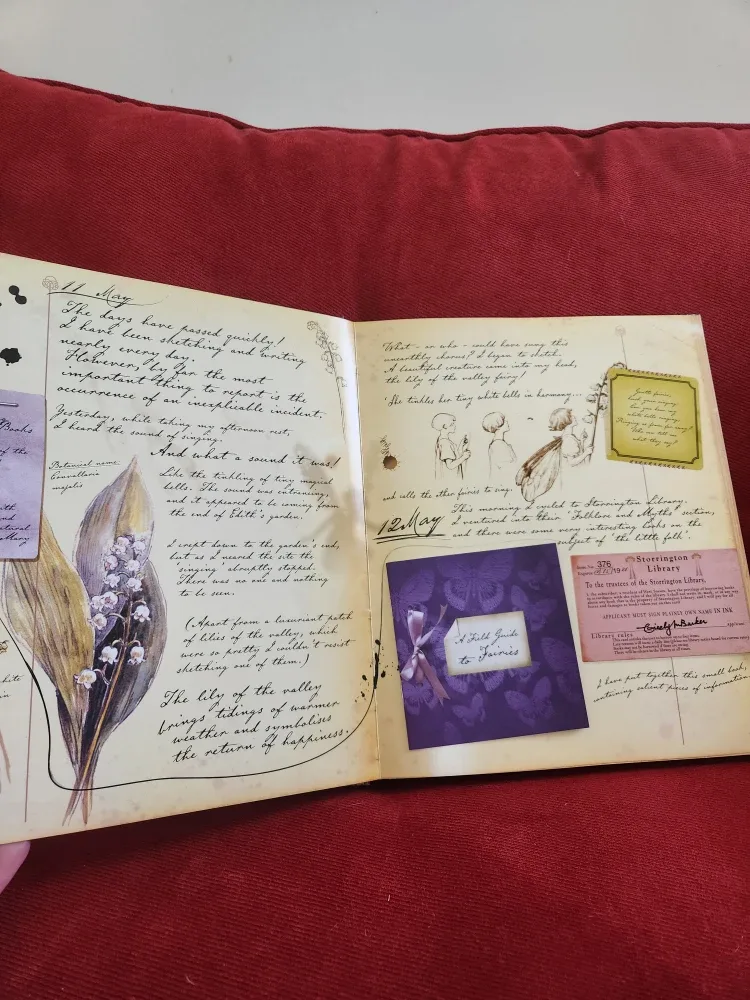 Books
of the
with
and
natural
Mary
white
in
11 May
The days have passed quickly!
I have been sketching and writing
nearly every day.
However, by far the most
important thing to report is the
occurrence of an inexplicable incident.
Yesterday, while taking my afternoon rest,
I heard the sound of singing.
And what a sound it was!
Botanical name:
Convallaria
majalis
Like the tinkling of tiny magical
bells. The sound was entrancing,
and it appeared to be coming from
the end of Edith's garden.
I crept down to the garden's end,
but as I neared the site the
'singing' abruptly stopped.
There was no one and nothing
to be seen.
(Apart from a luxuriant patch
of lilies of the valley, which
were so pretty I couldn't resist
sketching one of them.)
The lily of the valley
brings tidings of warmer
weather and symbolises
the return of happiness.
What - or who - could have sung this
unearthly chorus? I began to sketch.
A beautiful creature came into my head,
the lily of the valley fairy!
'She tinkles her tiny white bells in harmony...
and calls the other fairies to sing.
12 May
This morning I cycled to Storrington Library.
I ventured into their 'Folklore and Myths' section,
and there were some very interesting books on the
subject of 'the little folk'.
A Field Guide
to Fairies
376
Storrington
Library
To the trustees of the Storrington Library,
APPLICANT MUST SIGN PLAINLY OWN NAME IN INK
Cicely M Barker
Library rules
I have put together this small book,
containing salient pieces of information